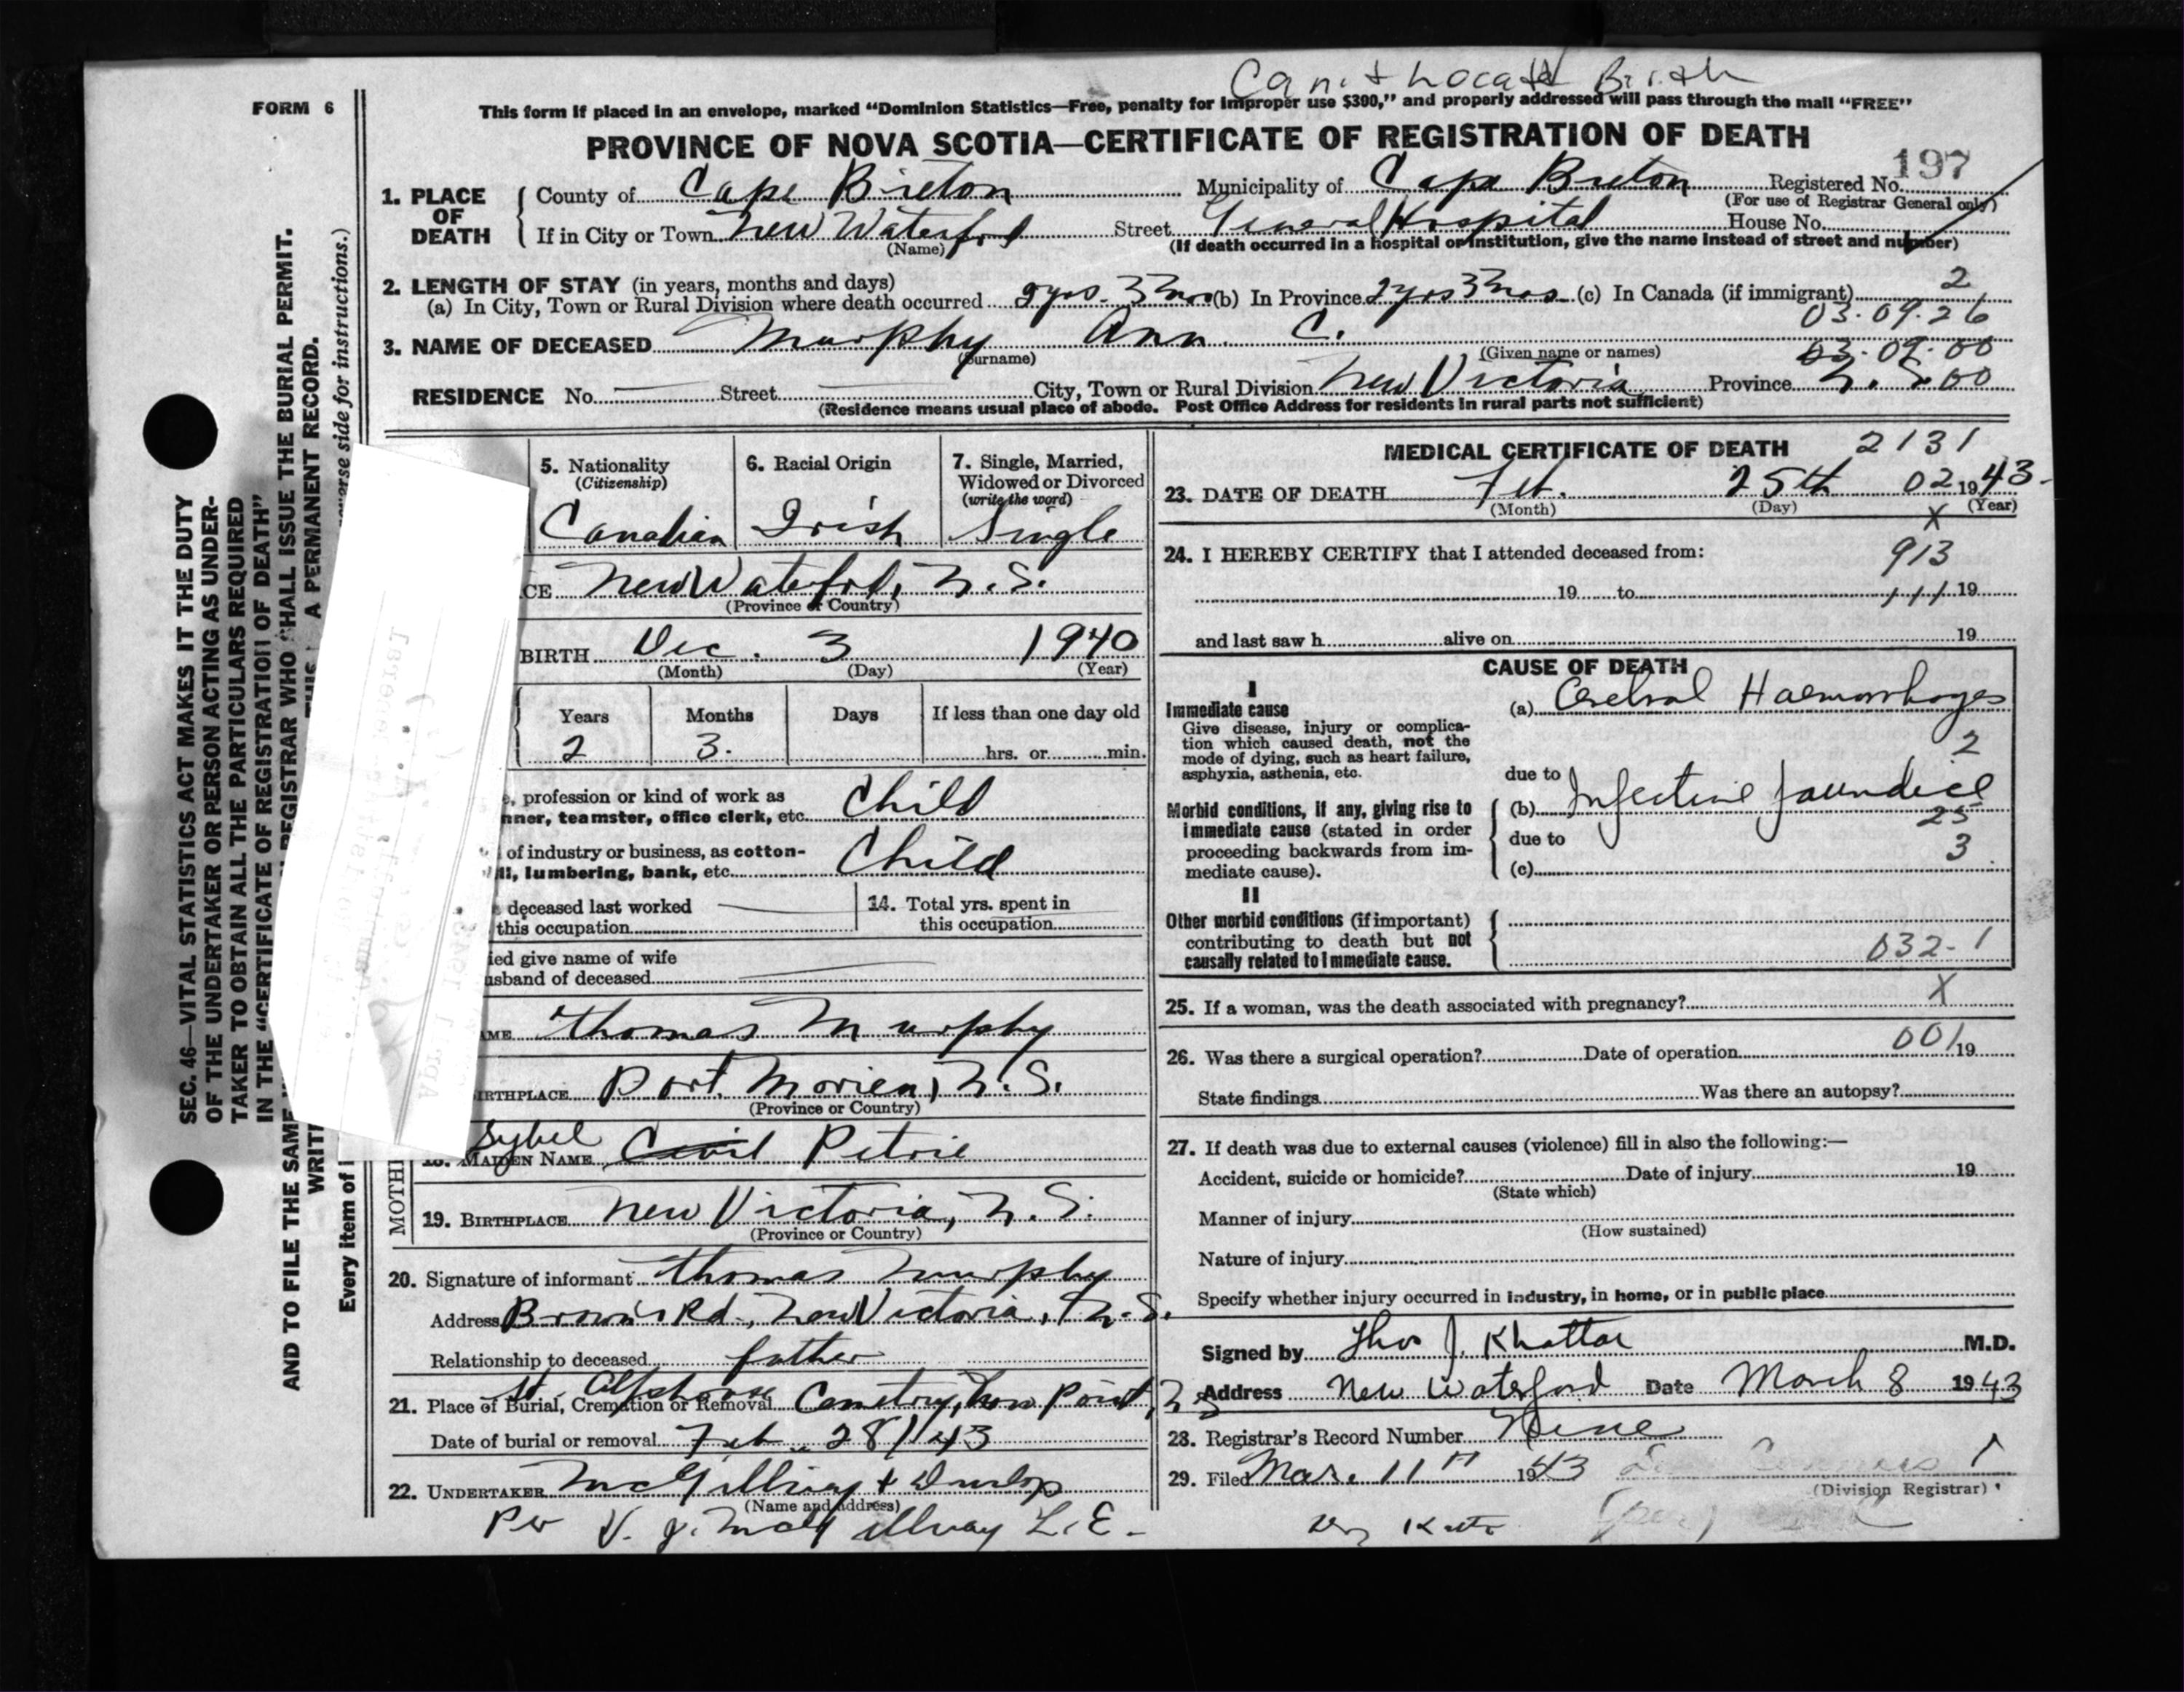 Can't Locate Birth
FORM 6
This form if placed in an envelope, marked “Dominion Statistics—Free, penalty for improper use $300,” and properly addressed will pass through the mail “FREE”
PROVINCE OF NOVA SCOTIA—CERTIFICATE OF REGISTRATION OF DEATH
197
1. PLACE OF DEATH
County of Cape Breton Municipality of Cape Breton Registered No.
(For use of Registrar General only)
If in City or Town New Waterford Street General Hospital House No.
(Name) (If death occurred in a hospital or institution, give the name instead of street and number)
2. LENGTH OF STAY (in years, months and days) 2
(a) In City, Town or Rural Division where death occurred 2 yrs. 3 mos (b) In Province 2 yrs 3 mos (c) In Canada (if immigrant)
03.09.26
3. NAME OF DECEASED Murphy Ann C.
(Surname) (Given name or names) 03.09.00
RESIDENCE No. Street City, Town or Rural Division New Victoria Province N.S. 00
(Residence means usual place of abode. Post Office Address for residents in rural parts not sufficient)
5. Nationality (Citizenship) Canadian
6. Racial Origin Irish
7. Single, Married, Widowed or Divorced (write the word) Single
CE New Waterford, N.S.
(Province or Country)
BIRTH Dec. 3 1940
(Month) (Day) (Year)
Years Months Days If less than one day old
2 3. hrs. or min.
, profession or kind of work as
nner, teamster, office clerk, etc. Child
of industry or business, as cotton-
ll, lumbering, bank, etc. Child
deceased last worked
this occupation
14. Total yrs. spent in
this occupation
ied give name of wife
usband of deceased
AME Thomas Murphy
IRTHPLACE Port Morien, N.S.
(Province or Country)
Sybel
MOTH
18. MAIDEN NAME Petrie
19. BIRTHPLACE New Victoria, N.S.
(Province or Country)
20. Signature of informant Thomas Murphy
Address Brown's Rd., New Victoria, N.S.
Relationship to deceased father
21. Place of Burial, Cremation or Removal St. Alphonse Cemetry, Low Point, N.S
Date of burial or removal Feb. 28/43
22. UNDERTAKER McGillivray & Dunlop
(Name and address)
Per V. J. McGillivray L.E.
MEDICAL CERTIFICATE OF DEATH 2131
23. DATE OF DEATH Feb. 25th 02 1943
(Month) (Day) (Year)
X
24. I HEREBY CERTIFY that I attended deceased from: 913
19 to 111 19
and last saw h alive on 19
CAUSE OF DEATH
I
Immediate cause
Give disease, injury or complica-
tion which caused death, not the
mode of dying, such as heart failure,
asphyxia, asthenia, etc.
(a) Cerebral Haemorrhages
2
due to
Morbid conditions, if any, giving rise to
immediate cause (stated in order
proceeding backwards from im-
mediate cause).
(b) Infective Jaundice
25
due to
3
(c)
II
Other morbid conditions (if important)
contributing to death but not
causally related to immediate cause.
032-1
X
25. If a woman, was the death associated with pregnancy?
26. Was there a surgical operation? Date of operation 001 19
State findings Was there an autopsy?
27. If death was due to external causes (violence) fill in also the following:—
Accident, suicide or homicide? Date of injury 19
(State which)
Manner of injury
(How sustained)
Nature of injury
Specify whether injury occurred in industry, in home, or in public place
Signed by Thos J. Khattar M.D.
Address New Waterford Date March 8 1943
28. Registrar's Record Number Nine
29. Filed Mar. 11th 1943
(Division Registrar)
SEC. 46—VITAL STATISTICS ACT MAKES IT THE DUTY
OF THE UNDERTAKER OR PERSON ACTING AS UNDER-
TAKER TO OBTAIN ALL THE PARTICULARS REQUIRED
IN THE “CERTIFICATE OF REGISTRATION OF DEATH”
AND TO FILE THE SAME REGISTRAR WHO SHALL ISSUE THE BURIAL PERMIT.
WRIT THIS A PERMANENT RECORD.
Every item of verse side for instructions.)